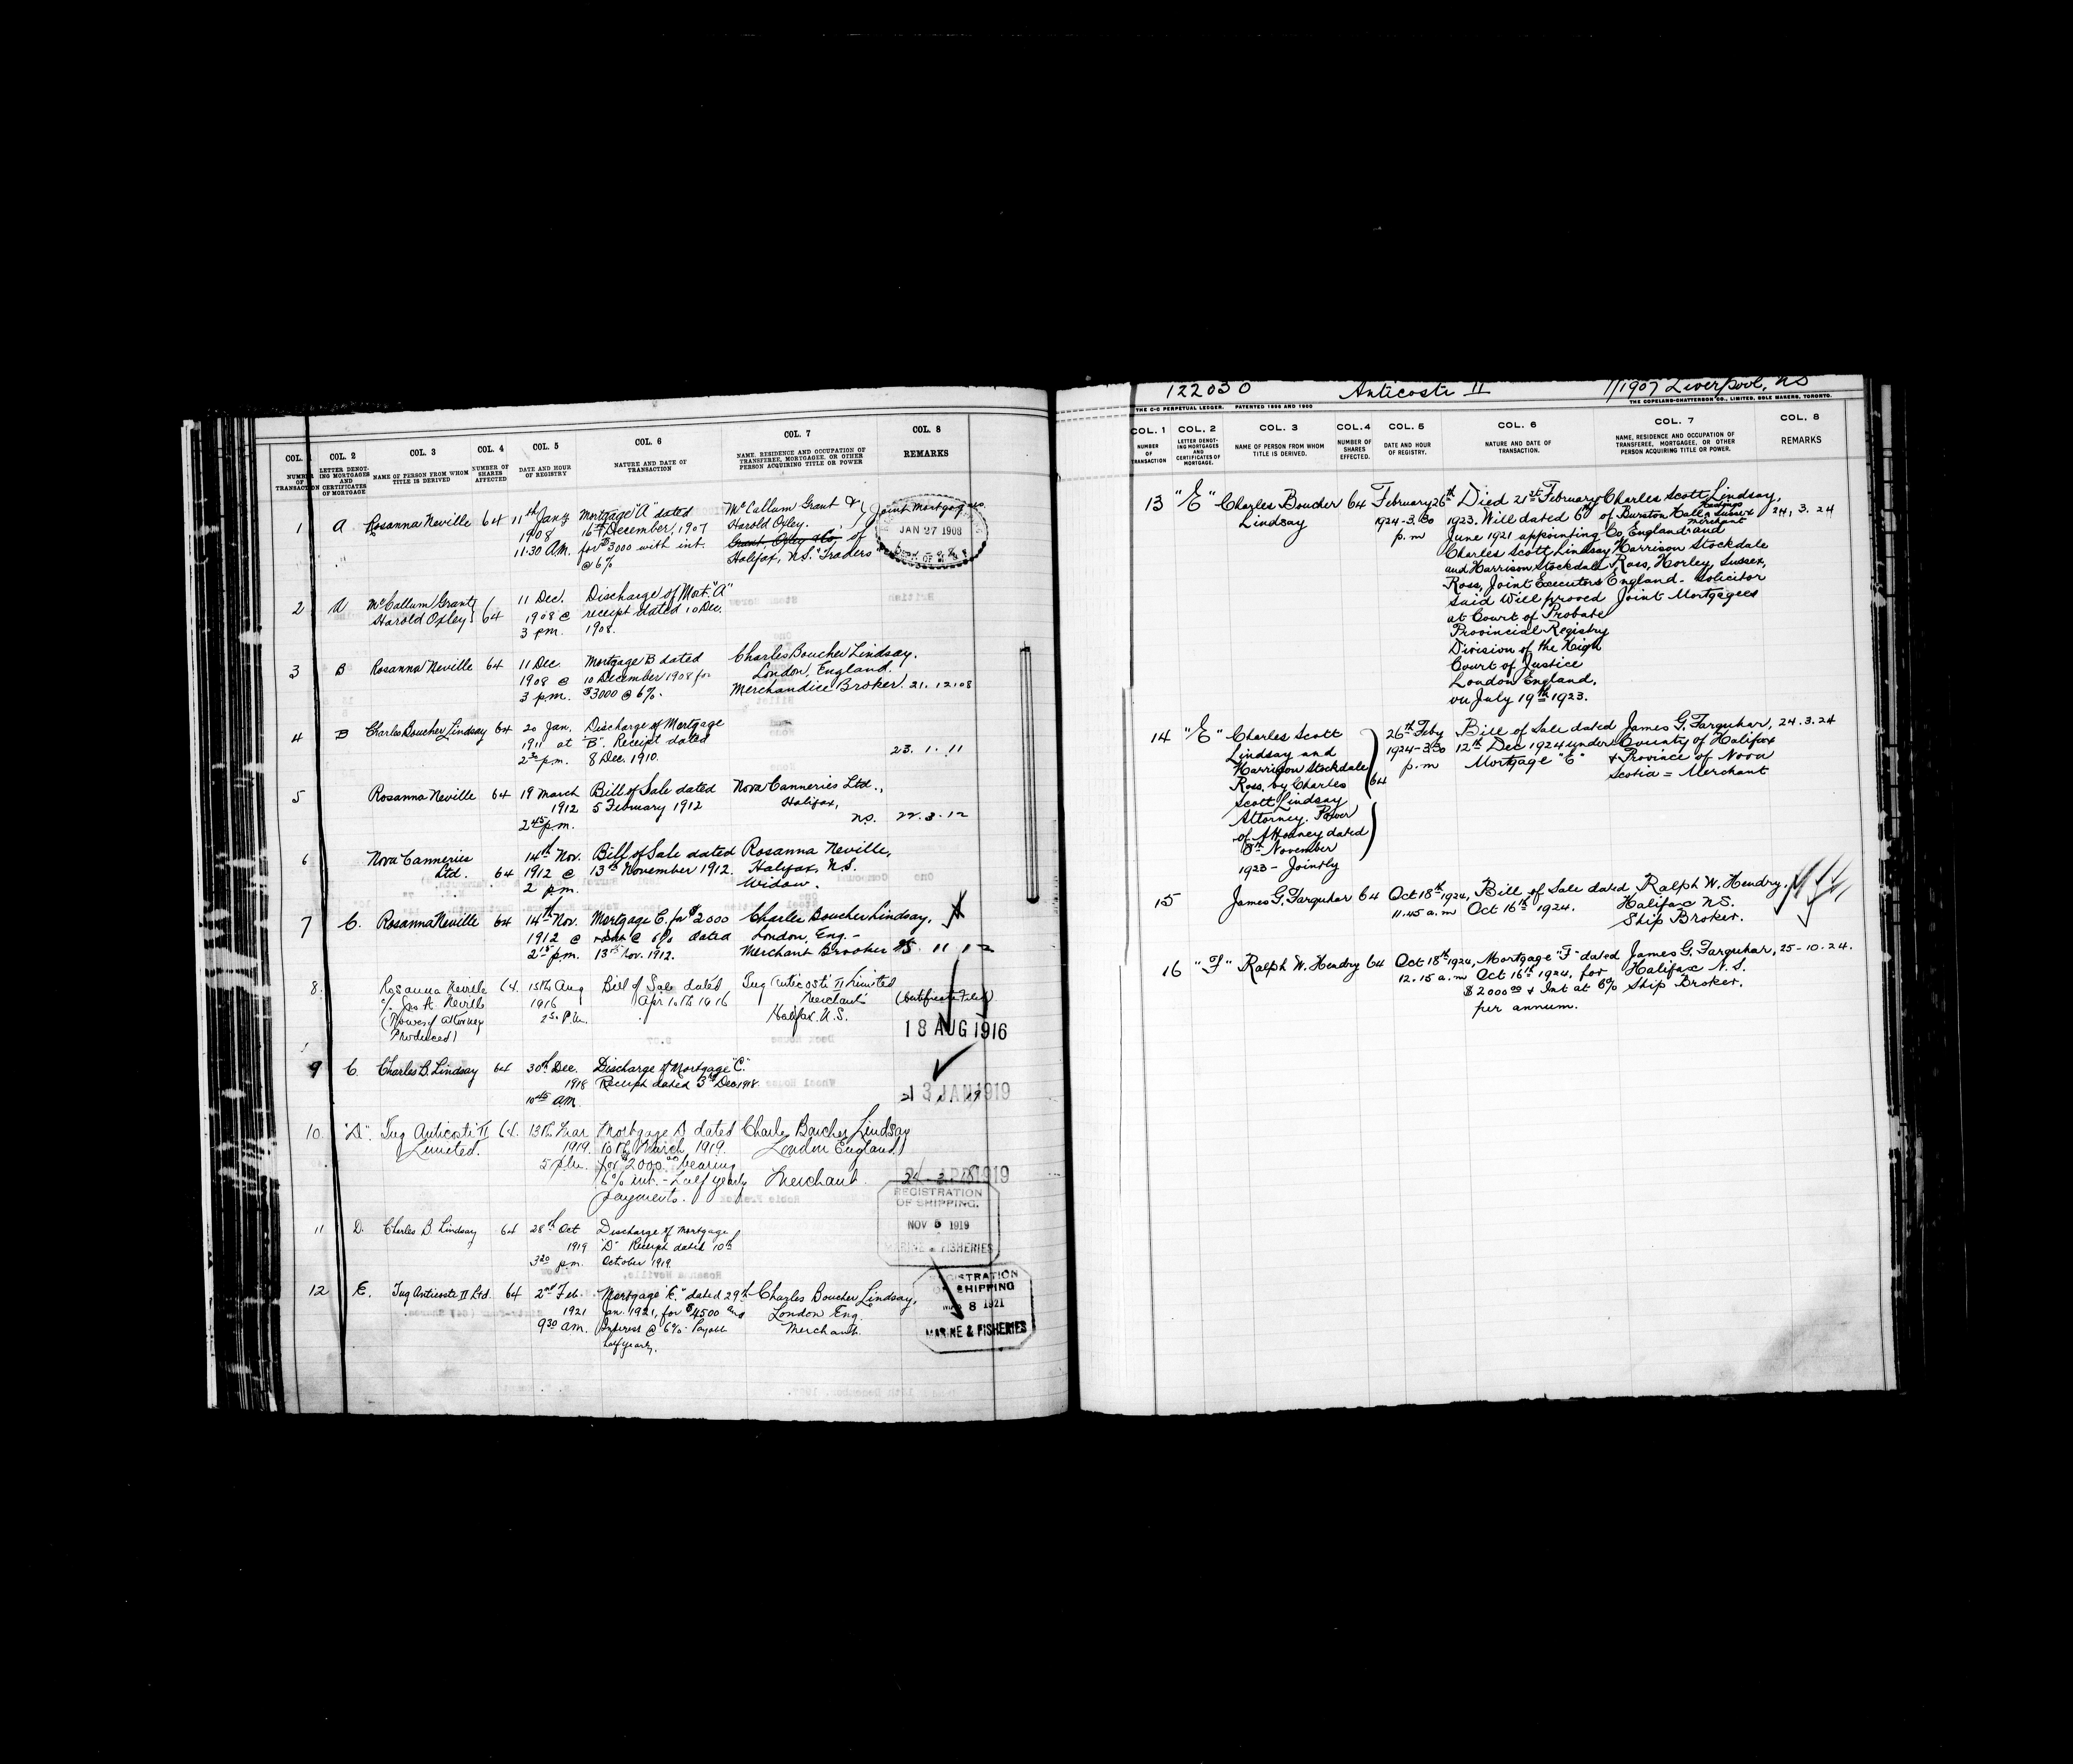 COL. 1 COL. 2 COL. 3 COL. 4 COL. 5 COL. 6 COL. 7 COL. 8
NUMBER OF TRANSACTION
LETTER DENOTING MORTGAGES AND CERTIFICATES OF MORTGAGE
NAME OF PERSON FROM WHOM TITLE IS DERIVED
NUMBER OF SHARES AFFECTED
DATE AND HOUR OF REGISTRY
NATURE AND DATE OF TRANSACTION
NAME, RESIDENCE AND OCCUPATION OF TRANSFEREE, MORTGAGEE, OR OTHER PERSON ACQUIRING TITLE OR POWER
REMARKS
1 A Rosanna Neville 64 11th Jany Mortgage "A" dated McCallum Grant & Joint Mortgagees
1908 16th December, 1907 Harold Oxley.
11.30 A.M. for $3000 with int. Grant, Oxley & Co, of
@ 6% Halifax, N.S. "Traders"
JAN 27 1908
2 A McCallum Grant 64 11 Dec. Discharge of Mort. "A"
Harold Oxley 1908 @ receipt dated 10 Dec.
3 p.m. 1908.
3 B Rosanna Neville 64 11 Dec. Mortgage B dated Charles Boucher Lindsay.
1908 @ 10 December 1908 for London, England.
3 p.m. $3000 @ 6%. Merchandice Broker. 21.12.08
4 B Charles Boucher Lindsay 64 20 Jan. Discharge of Mortgage
1911 at "B". Receipt dated
2 30 p.m. 8 Dec. 1910. 23.1.11
5 Rosanna Neville 64 19 March Bill of Sale dated Nova Canneries Ltd.,
1912 5 February 1912 Halifax,
2 45 p.m. N.S. 22.3.12
6 Nova Canneries 14th Nov. Bill of Sale dated Rosanna Neville,
Ltd. 64 1912 @ 13th November 1912. Halifax, N.S.
2 p.m. Widow.
7 C. Rosanna Neville 64 14th Nov. Mortgage C. for $2000 Charles Boucher Lindsay,
1912 @ + Int @ 6% dated London, Eng.-
2 15 p.m. 13th Nov. 1912. Merchant Brooker 15 11 12
8. Rosanna Neville 64. 15th Aug Bill of Sale dated Tug Anticosti II Limited
Jas A. Neville 1916 Apr 10th 1916 Merchants (Certificate Filed)
(Power of Attorney 2 30 P.M. Halifax. N.S.
Produced) 18 AUG 1916
9 C. Charles B. Lindsay 64 30th Dec. Discharge of Mortgage "C".
1918 Receipt dated 3rd Dec 1918.
10 45 AM 13 JAN 1919
10. "D". Tug Anticosti II 64. 13th Mar Mortgage D dated Charles Boucher Lindsay
Limited. 1919. 10th March 1919. London England)
5 p.m. for $2000.00 bearing
6% int. - half yearly Merchant APR 1919
payments.
REGISTRATION
OF SHIPPING.
NOV 5 1919
MARINE & FISHERIES
11 D. Charles B. Lindsay 64 28th Oct Discharge of Mortgage
1919 "D" Receipt dated 10th
3 20 p.m. October 1919
12 E. Tug Anticosti II Ltd. 64 2nd Feb. Mortgage "E." dated 29th Charles Boucher Lindsay,
1921 Jan. 1921, for $4500 and London Eng.
9 30 am. Interest @ 6% Payable Merchant.
half yearly.
REGISTRATION
OF SHIPPING
MAR 8 1921
MARINE & FISHERIES
122030 Anticosti II 11/1907 Liverpool, NS
THE C-C PERPETUAL LEDGER. PATENTED 1896 AND 1900 THE COPELAND-CHATTERSON CO., LIMITED, SOLE MAKERS, TORONTO.
COL. 1 COL. 2 COL. 3 COL. 4 COL. 5 COL. 6 COL. 7 COL. 8
NUMBER OF TRANSACTION
LETTER DENOTING MORTGAGES AND CERTIFICATES OF MORTGAGE.
NAME OF PERSON FROM WHOM TITLE IS DERIVED.
NUMBER OF SHARES EFFECTED.
DATE AND HOUR OF REGISTRY.
NATURE AND DATE OF TRANSACTION.
NAME, RESIDENCE AND OCCUPATION OF TRANSFEREE, MORTGAGEE, OR OTHER PERSON ACQUIRING TITLE OR POWER.
REMARKS
13 "E" Charles Boucher 64 February 26th Died 21st February Charles Scott Lindsay,
Lindsay 1924-3.30 1923. Will dated 6th of Burston Hall, Hastings Sussex 24.3.24
p.m June 1921 appointing Co, England merchant and
Charles Scott Lindsay Harrison Stockdale
and Harrison Stockdale Ross, Horley, Sussex,
Ross, Joint Executors England - Solicitor
said Will proved Joint Mortgagees
at Court of Probate
Provincial Registry
Division of the High
Court of Justice
London England,
on July 19th 1923.
14 "E" Charles Scott 26th Feby Bill of Sale dated James G. Farquhar, 24.3.24
Lindsay and 1924-3.30 12th Dec 1924 under County of Halifax
Harrison Stockdale p.m Mortgage "E" & Province of Nova
Ross, by Charles 64 Scotia = Merchant
Scott Lindsay
Attorney. Power
of Attorney dated
8th November
1923 - Jointly
15 James G. Farquhar 64 Oct 18th 1924, Bill of Sale dated Ralph W. Hendry,
11.45 a.m Oct 16th 1924. Halifax NS.
Ship Broker.
16 "F" Ralph W. Hendry 64 Oct 18th 1924, Mortgage "F" dated James G. Farquhar, 25-10.24.
12.15 a.m Oct 16th 1924, for Halifax N.S.
$2000.00 & Int at 6% Ship Broker.
per annum.